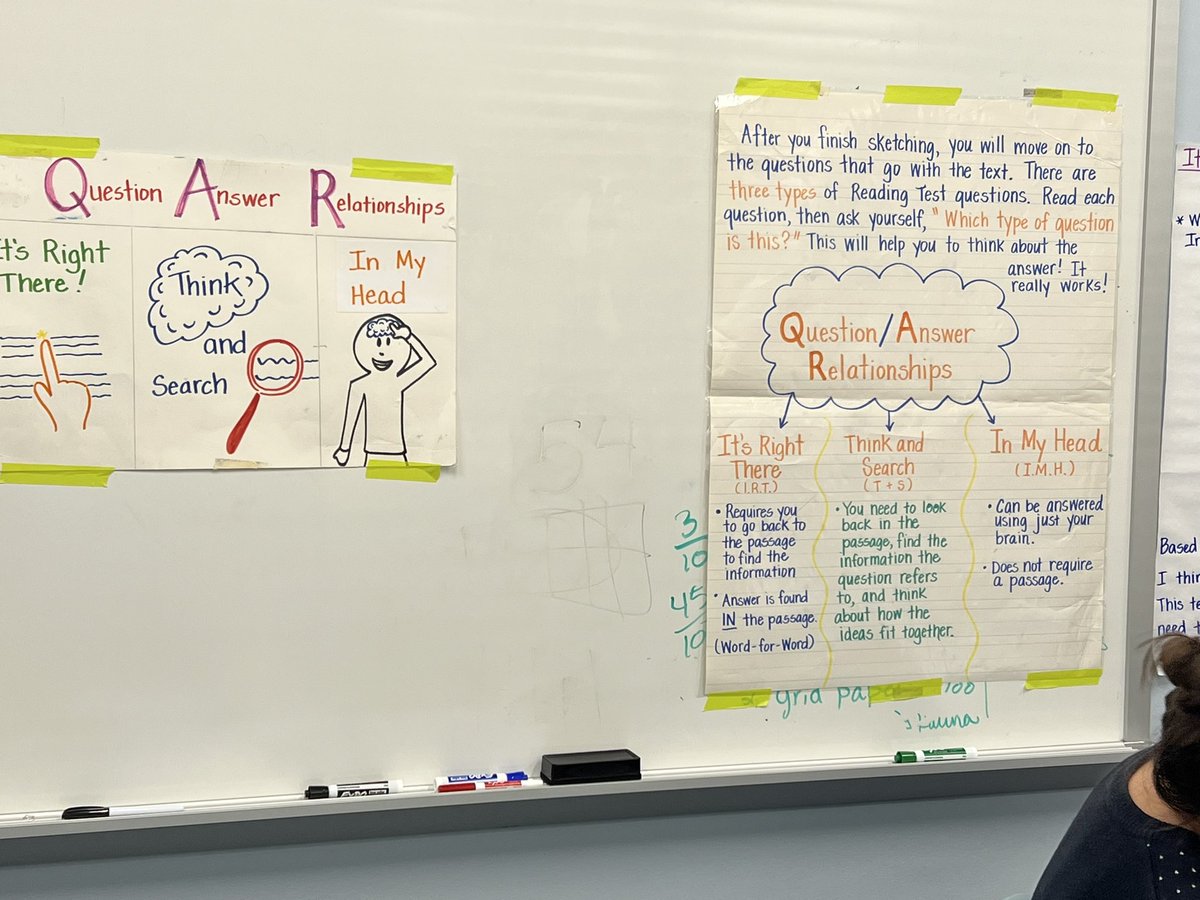 Question Answer Relationships
It's Right
There!
Think
and
Search
In My
Head
After you finish sketching, you will move on to
the questions that go with the text. There are
three types of Reading Test questions. Read each
question, then ask yourself, "Which type of question
is this?" This will help you to think about the
answer! It
really works!
Question/Answer
Relationships
It's Right
There
(I.R.T.)
• Requires you
to go back to
the passage
to find the
information
• Answer is found
IN the passage.
(Word-for-Word)
Think and
Search
(T + S)
• You need to look
back in the
passage, find the
information the
question refers
to, and think
about how the
ideas fit together.
In My Head
(I.M.H.)
• Can be answered
using just your
brain.
• Does not require
a passage.
54
3
10
45
10
100
It
* W
In
Based
I thin
This te
need t
EXPO